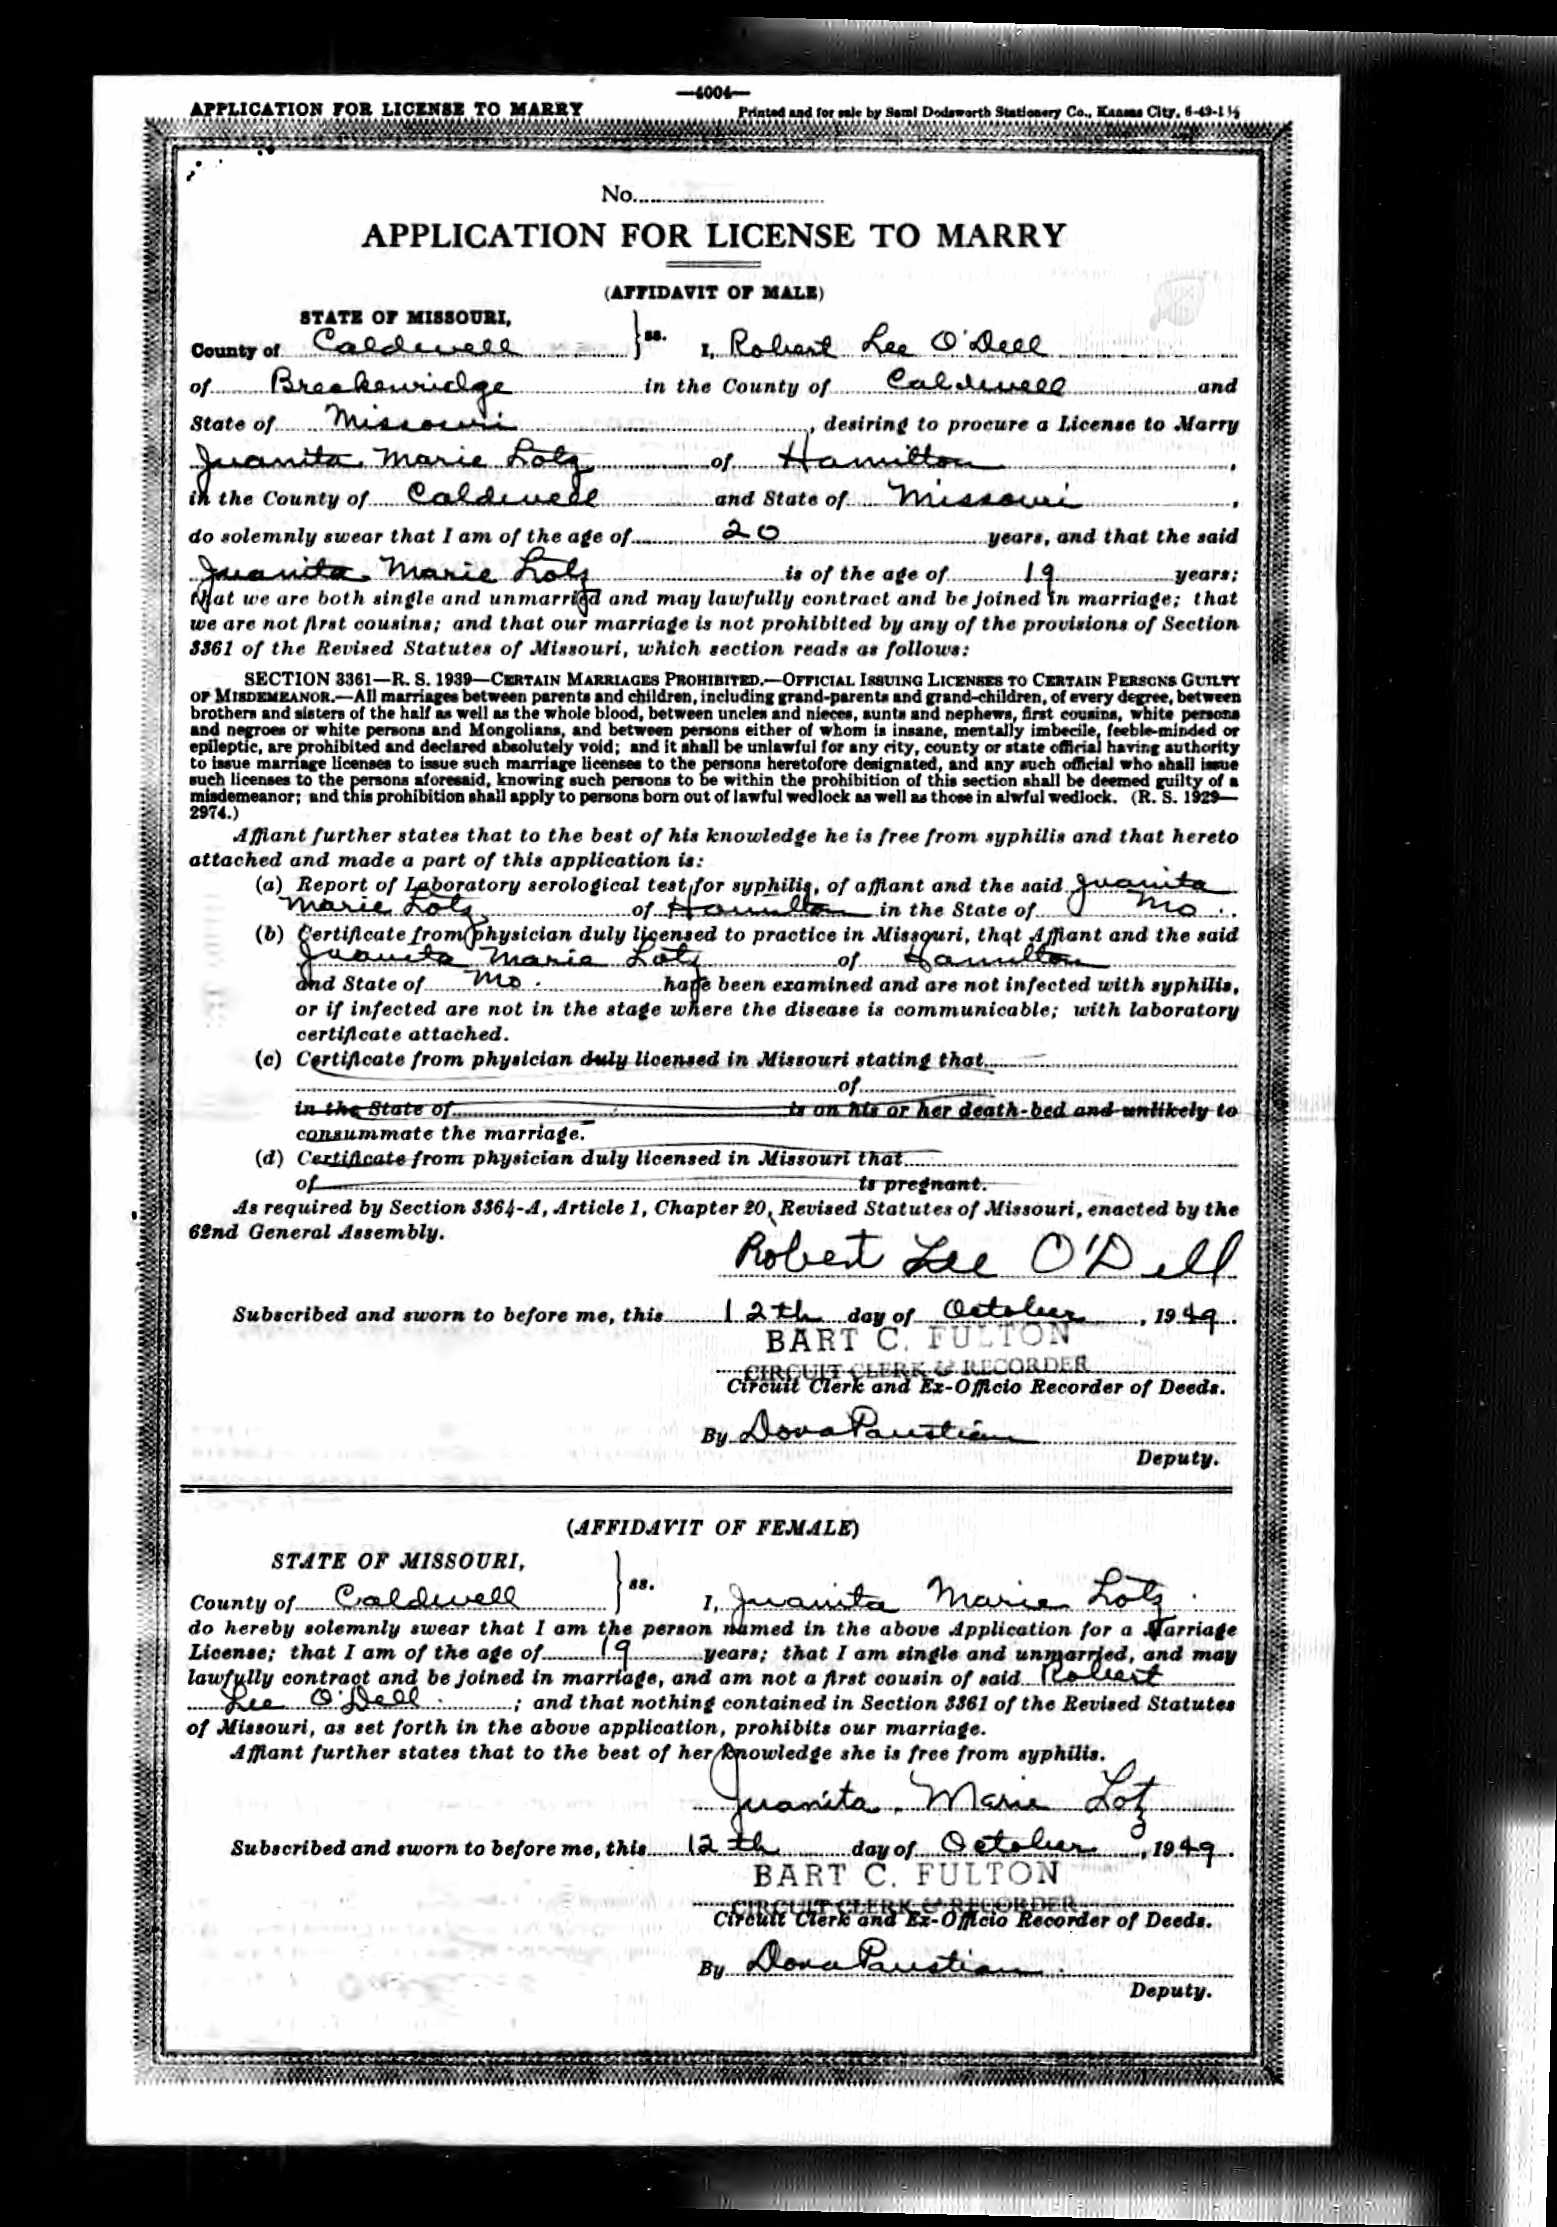 —4004—
APPLICATION FOR LICENSE TO MARRY Printed and for sale by Saml Dodsworth Stationery Co., Kansas City, 6-49-1½
No.
APPLICATION FOR LICENSE TO MARRY
(AFFIDAVIT OF MALE)
STATE OF MISSOURI,
County of Caldwell } ss. I, Robert Lee O'Dell
of Breckenridge in the County of Caldwell and
State of Missouri, desiring to procure a License to Marry
Juanita Marie Lotz of Hamilton,
in the County of Caldwell and State of Missouri,
do solemnly swear that I am of the age of 20 years, and that the said
Juanita Marie Lotz is of the age of 19 years;
that we are both single and unmarried and may lawfully contract and be joined in marriage; that
we are not first cousins; and that our marriage is not prohibited by any of the provisions of Section
3361 of the Revised Statutes of Missouri, which section reads as follows:
SECTION 3361—R. S. 1939—CERTAIN MARRIAGES PROHIBITED.—OFFICIAL ISSUING LICENSES TO CERTAIN PERSONS GUILTY
OF MISDEMEANOR.—All marriages between parents and children, including grand-parents and grand-children, of every degree, between
brothers and sisters of the half as well as the whole blood, between uncles and nieces, aunts and nephews, first cousins, white persons
and negroes or white persons and Mongolians, and between persons either of whom is insane, mentally imbecile, feeble-minded or
epileptic, are prohibited and declared absolutely void; and it shall be unlawful for any city, county or state official having authority
to issue marriage licenses to issue such marriage licenses to the persons heretofore designated, and any such official who shall issue
such licenses to the persons aforesaid, knowing such persons to be within the prohibition of this section shall be deemed guilty of a
misdemeanor; and this prohibition shall apply to persons born out of lawful wedlock as well as those in alwful wedlock. (R. S. 1929—
2974.)
Affiant further states that to the best of his knowledge he is free from syphilis and that hereto
attached and made a part of this application is:
(a) Report of Laboratory serological test for syphilis, of affiant and the said Juanita
Marie Lotz of Hamilton in the State of Mo.
(b) Certificate from physician duly licensed to practice in Missouri, that Affiant and the said
Juanita Marie Lotz of Hamilton
and State of Mo. have been examined and are not infected with syphilis,
or if infected are not in the stage where the disease is communicable; with laboratory
certificate attached.
(c) Certificate from physician duly licensed in Missouri stating that
of
in the State of is on his or her death-bed and unlikely to
consummate the marriage.
(d) Certificate from physician duly licensed in Missouri that
of is pregnant.
As required by Section 3364-A, Article 1, Chapter 20, Revised Statutes of Missouri, enacted by the
62nd General Assembly.
Robert Lee O'Dell
Subscribed and sworn to before me, this 12th day of October, 1949.
BART C. FULTON
CIRCUIT CLERK & RECORDER
Circuit Clerk and Ex-Officio Recorder of Deeds.
By Dova Paustian
Deputy.
(AFFIDAVIT OF FEMALE)
STATE OF MISSOURI,
County of Caldwell } ss. I, Juanita Marie Lotz
do hereby solemnly swear that I am the person named in the above Application for a Marriage
License; that I am of the age of 19 years; that I am single and unmarried, and may
lawfully contract and be joined in marriage, and am not a first cousin of said Robert
Lee O'Dell; and that nothing contained in Section 3361 of the Revised Statutes
of Missouri, as set forth in the above application, prohibits our marriage.
Affiant further states that to the best of her knowledge she is free from syphilis.
Juanita Marie Lotz
Subscribed and sworn to before me, this 12th day of October, 1949.
BART C. FULTON
CIRCUIT CLERK & RECORDER
Circuit Clerk and Ex-Officio Recorder of Deeds.
By Dova Paustian
Deputy.